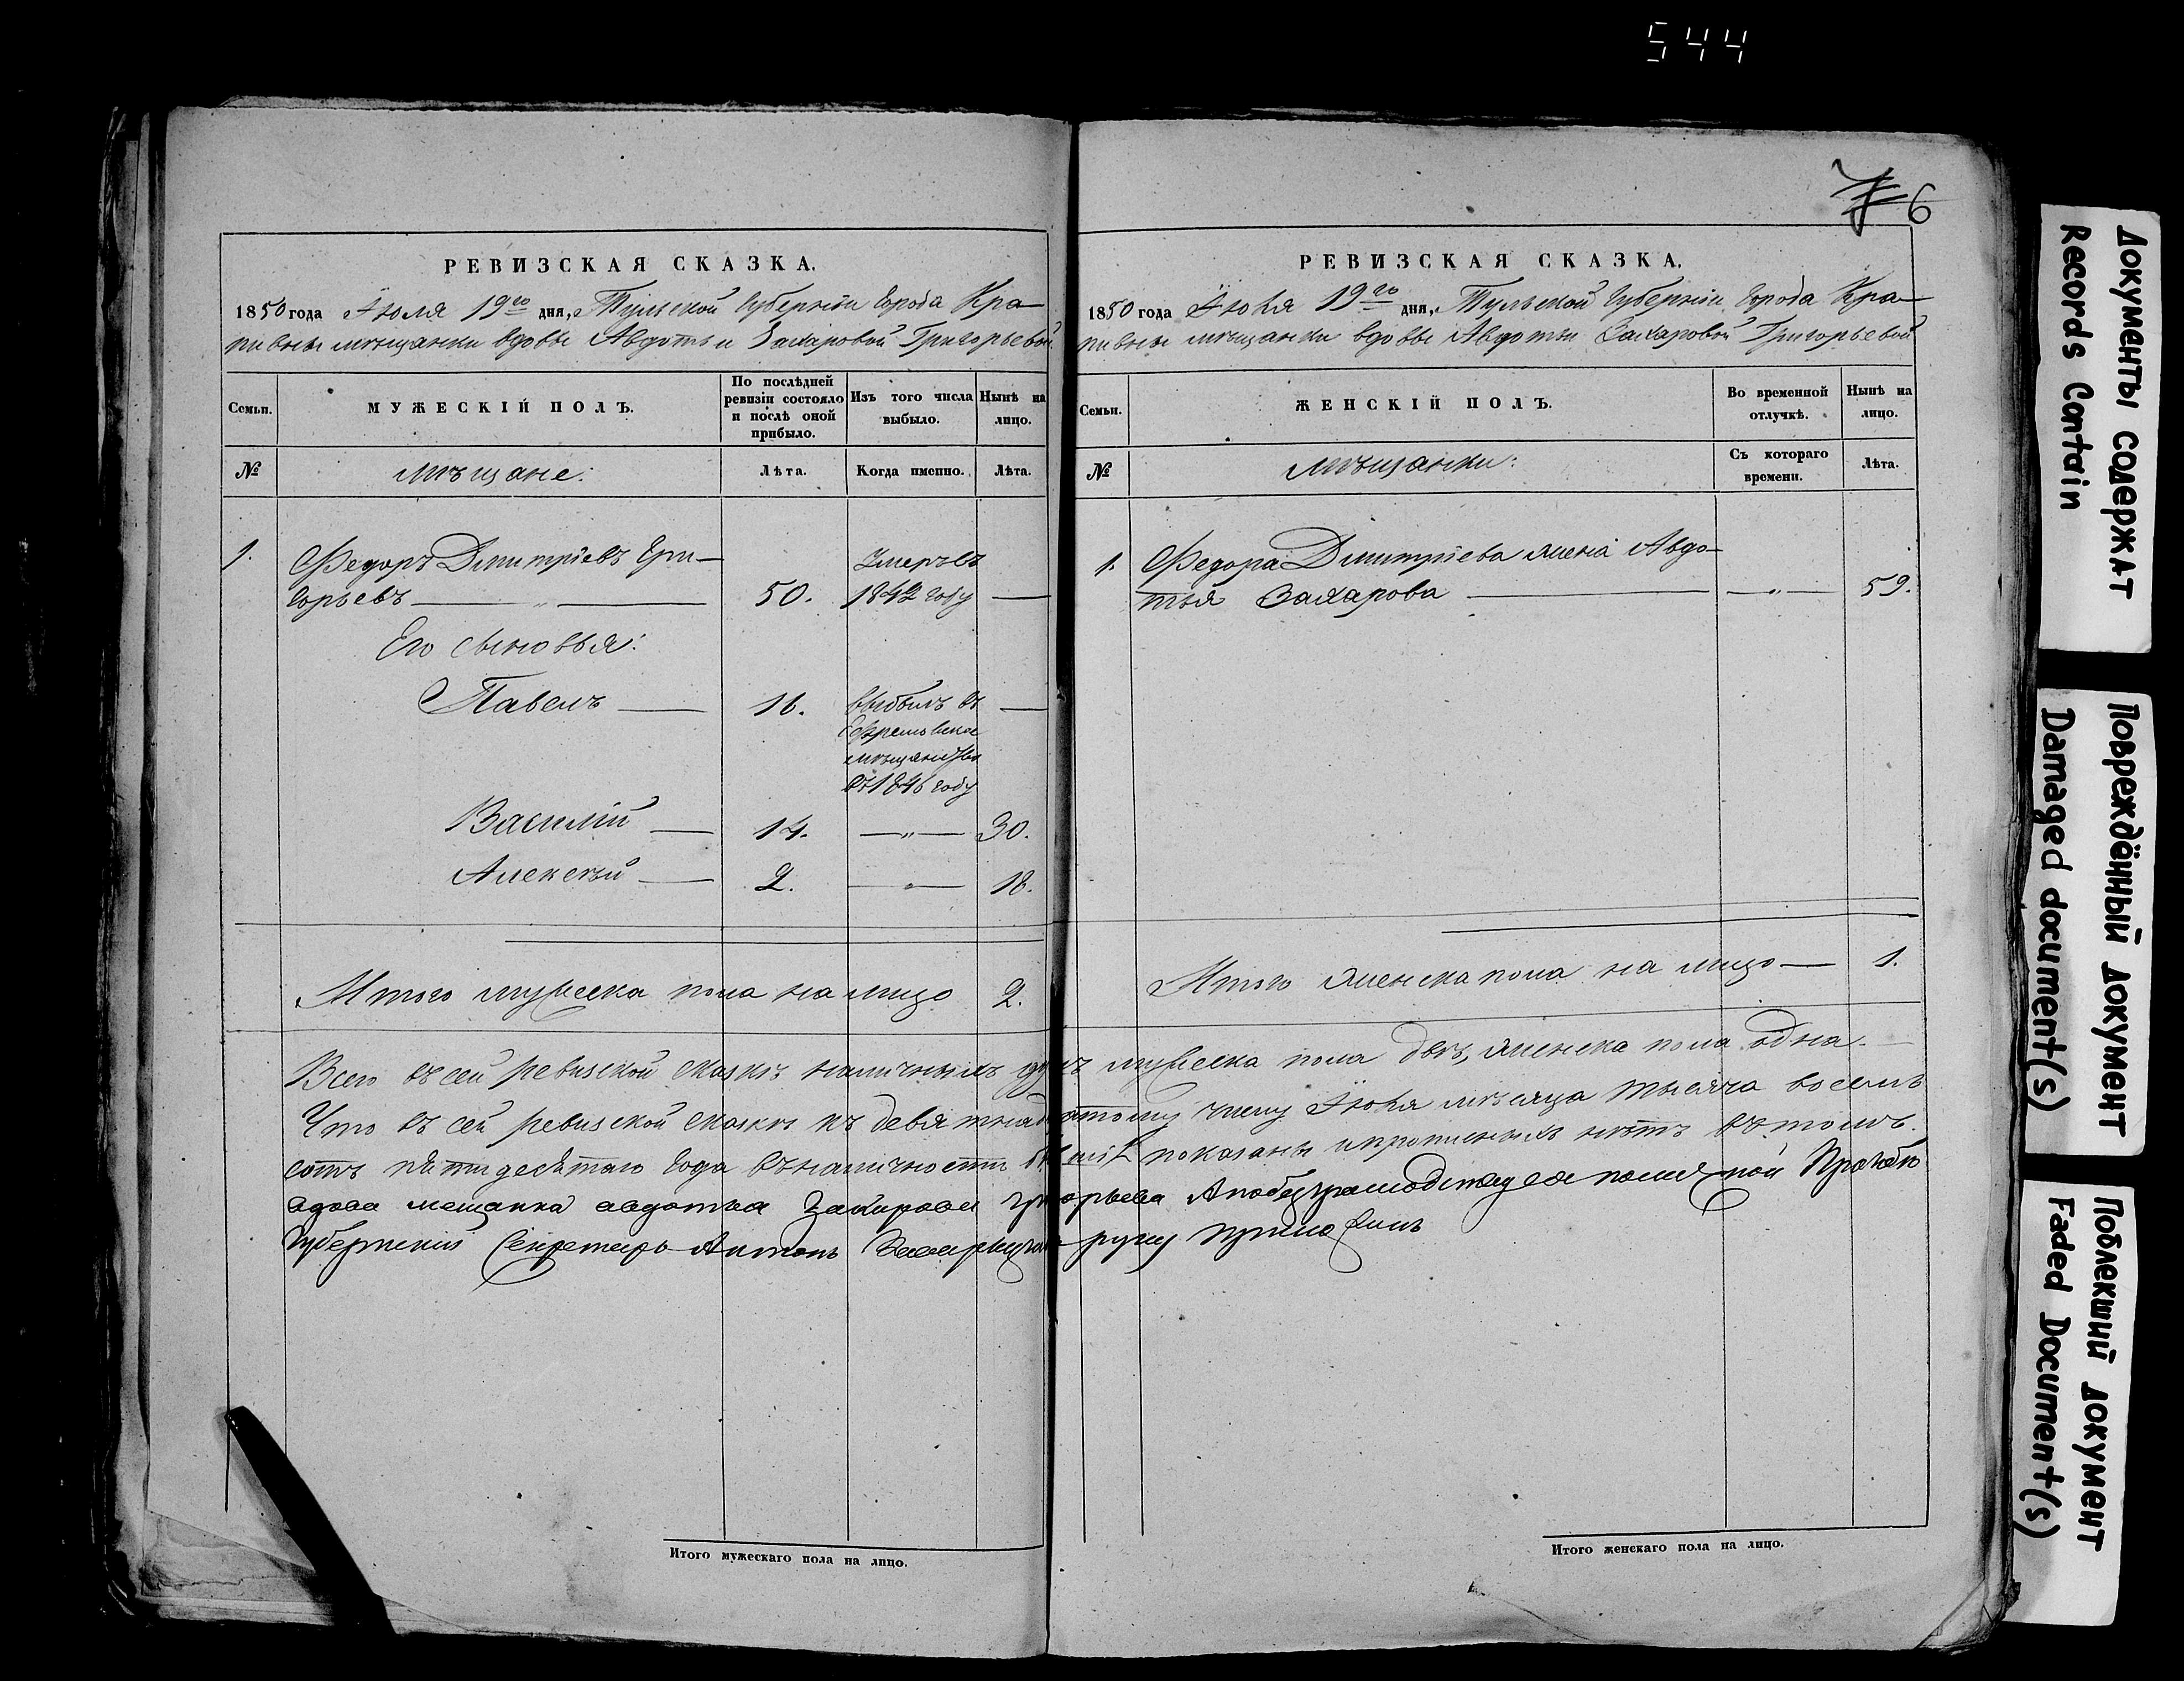 544
6
РЕВИЗСКАЯ СКАЗКА.
1850 года Июля 19го дня, Тульской Губерніи города Кра-
пивны мѣщанки вдовы Авдотьи Захаровой Григорьевой
Семьи.
МУЖЕСКІЙ ПОЛЪ.
По послѣдней ревизіи состояло и послѣ оной прибыло.
Изъ того числа выбыло.
Нынѣ на лицо.
№
мѣщане:
Лѣта.
Когда именно.
Лѣта.
1.
Федоръ Дмитріевъ Гри-
горьевъ — „ — 50. Умеръ въ 1842 году —
Его сыновья:
Павелъ — 16. выбылъ въ Ефремовское мѣщанство въ 1846 году —
Василій — 14. —„— 30.
Алексѣй — 2. —„— 18.
Итого мужеска пола на лицо 2.
РЕВИЗСКАЯ СКАЗКА.
1850 года Июля 19го дня, Тульской Губерніи города Кра-
пивны мѣщанки вдовы Авдотьи Захаровой Григорьевой
Семьи.
ЖЕНСКІЙ ПОЛЪ.
Во временной отлучкѣ.
Нынѣ на лицо.
№
мѣщанки:
Съ котораго времени.
Лѣта.
1.
Федора Дмитріева жена Авдо-
тья Захарова — —„— 59.
Итого женска пола на лицо — 1.
Всего въ сей ревизской сказкѣ наличныхъ душъ мужеска пола двѣ, женска пола одна.
Что въ сей ревизской сказкѣ къ девятнадцатому числу Июля мѣсяца тысяча восемь
сотъ пятидесятаго года въ наличности показаны и прописныхъ нѣтъ въ томъ.
вдова мещанка авдотья Захарова григорьева А по безграмодству ея по
Губернский Секретарь Антонъ руку приложилъ
Итого мужескаго пола на лицо.
Итого женскаго пола на лицо.
Документы содержат
Records Contain
Повреждённый документ
Damaged document(s)
Поблекший документ
Faded Document(s)